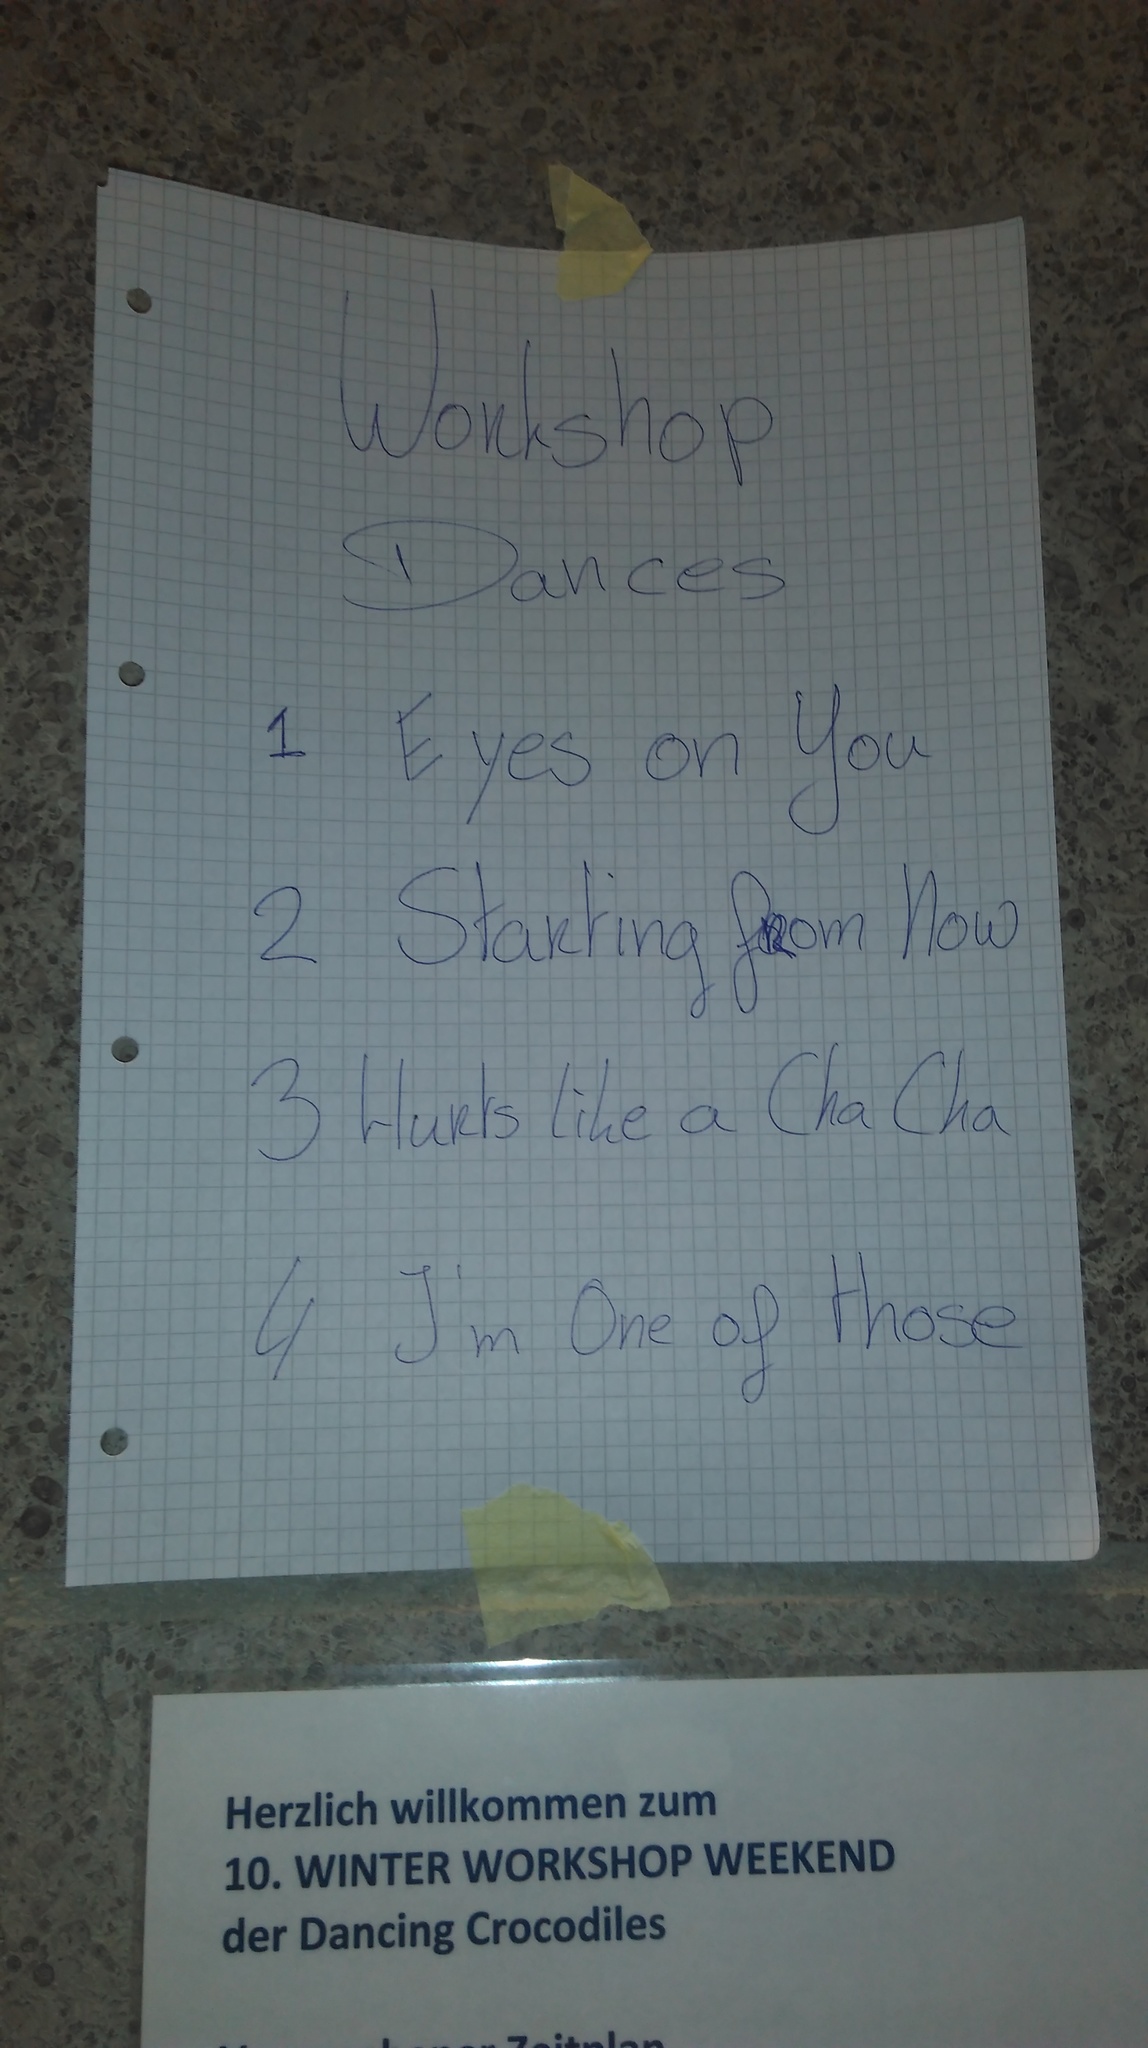 Workshop
Dances
1 Eyes on You
2 Starting from Now
3 Hurts like a Cha Cha
4 I'm One of those
Herzlich willkommen zum
10. WINTER WORKSHOP WEEKEND
der Dancing Crocodiles
Zeitplan